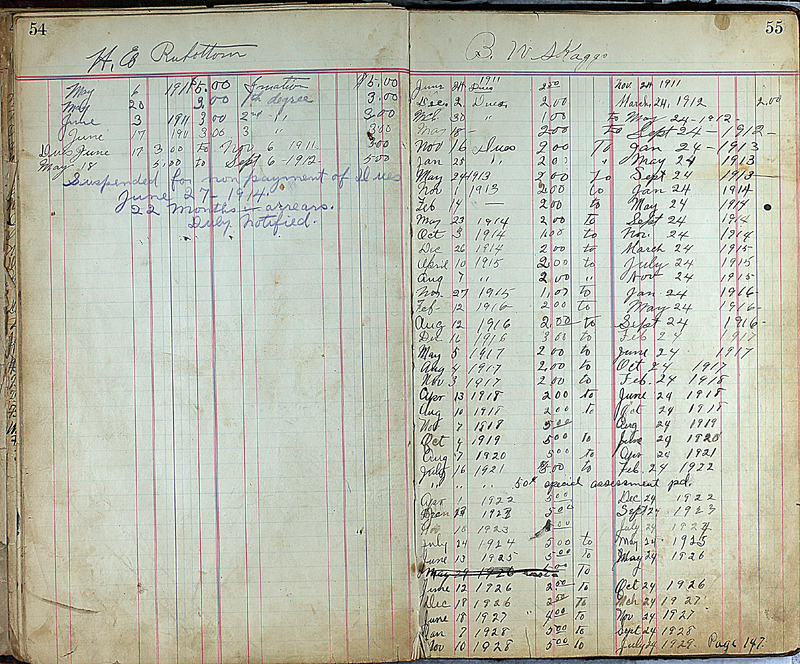 54
H. E. Rubottom
May 6 1911 $5.00 Initiation $5.00
May 20 3.00 1st degree 3.00
June 3 1911 3.00 2nd " 3.00
June 17 1911 3.00 3 " 3.00
Dues June 17 3.00 to Nov 6 1911 3.00
May 18 5.00 to Sept 6 - 1912 5.00
Suspended for non payment of Dues
June 27 - 1914.
22 Months in arrears.
Duly Notified.
55
B. W. Skaggs
June 24 1911 Dues 2.00 Nov. 24 1911
Dec. 2. Dues 2.00 March. 24, 1912 2.00
Mch 30 " 1.00 to May 24 - 1912 -
18 — 2.00 to Sept 24 - 1912 -
Nov 16 Dues 2.00 To Jan 24 - 1913
Jan 25 " 2.00 " May 24 1913
May 24 1913 2.00 to Sept 24 1913
Nov 1 1913 2.00 to Jan 24 1914
Feb 14 — 2.00 to May 24 1914
May 23 1914 2.00 to Sept 24 1914
Oct 3 1914 1.00 to Nov. 24 1914
Dec 26 1914 2.00 to March 24 1915
April 10 1915 2.00 to July 24 1915
Aug 7 " 2.00 " Nov 24 1915
Nov. 27 1915 1.00 to Jan 24 1916
Feb. 12 1916 2.00 to May 24 1916 -
Aug 12 1916 2.00 to Sept 24 1916 -
Dec 16 1916 3.00 to Feb 24 1917
May 5 1917 2.00 to June 24 1917
Aug 4 1917 2.00 to Oct 24 1917
Nov. 3 1917 2.00 to Feb. 24 1918
Apr 13 1918 2.00 to June 24 1918
Aug 10 1918 2.00 to Oct 24 1918
Nov 7 1818 5.00 Aug 24 1919
Oct 4 1919 5.00 to June 24 1920
Aug 7 1920 5.00 to Apr 24 1921
July 16 1921 5.00 to Feb. 24 1922
" " " 50¢ special assessment pd.
Apr 1 1922 5.00 Dec 24 1922
23 1923 5.00 Sept 24 1923
18 1923 5.00 July 24 1924
July 24 1924 5.00 to May 24 1925
June 13 1925 5.00 To May 24 1926
May 29 1926 To
June 12 1926 2.00 To Oct 24 1926
Dec 18 1926 2.00 To Mch 24 1927
June 18 1927 4.00 to Nov 24 1927
Jan 7 1928 5.00 to Sept 24 1928
Nov 10 1928 5.00 to July 24 1929. Page 147.